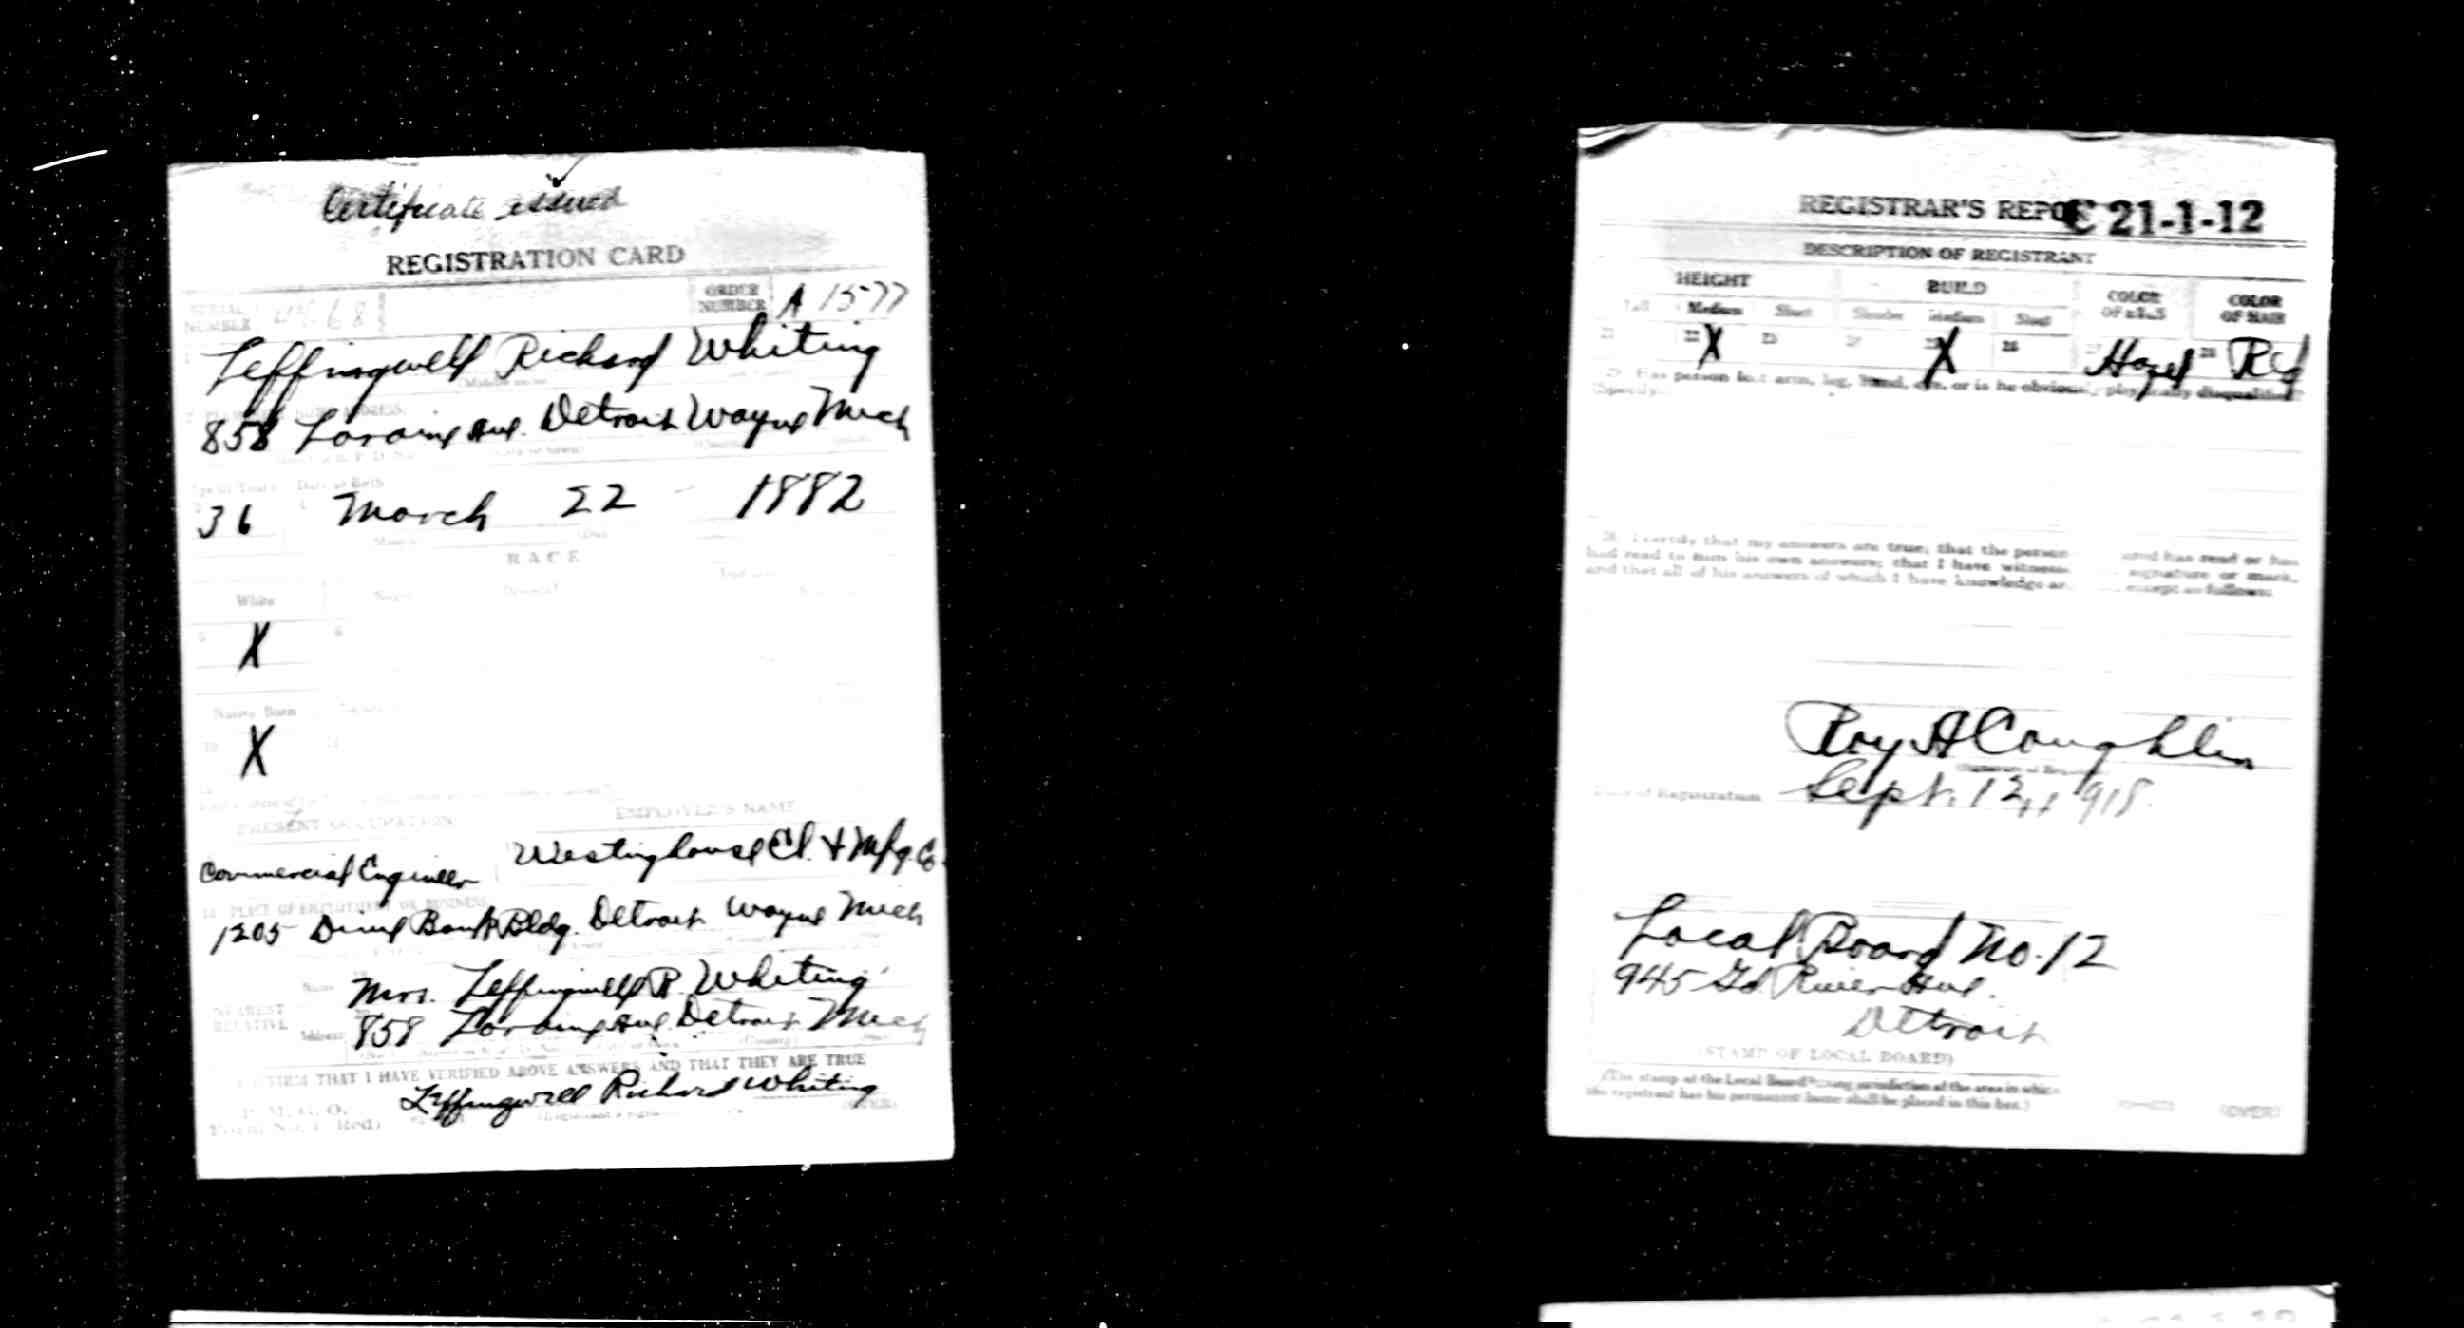 Certificate issued
REGISTRATION CARD
SERIAL NUMBER
ORDER NUMBER A 1577
Leffingwell Richard Whiting
858 Loraine Ave. Detroit Wayne Mich
Age in Years Date of Birth
36 March 22 1882
RACE
White
X
Native Born
X
PRESENT OCCUPATION EMPLOYER'S NAME
Commercial Engineer Westinghouse El. & Mfg. Co.
PLACE OF EMPLOYMENT OR BUSINESS
1205 Dime Bank Bldg. Detroit Wayne Mich
NEAREST RELATIVE
Name Mrs. Leffingwell R. Whiting
Address 858 Loraine Ave Detroit Mich
THAT I HAVE VERIFIED ABOVE ANSWERS AND THAT THEY ARE TRUE
Leffingwell Richard Whiting
P. M. G. O.
Form No. 1 (Red) (OVER)
REGISTRAR'S REPO C 21-1-12
DESCRIPTION OF REGISTRANT
HEIGHT BUILD COLOR OF EYES COLOR OF HAIR
Tall Medium Short Slender Medium Stout
21 22 X 23 24 25 X 26 27 Hazel 28 Red
29 Has person lost arm, leg, hand, eye, or is he obviously physically disqualified?
(Specify.)
30 I certify that my answers are true; that the person has read or has
had read to him his own answers; that I have witnessed signature or mark,
and that all of his answers of which I have knowledge are except as follows:
Roy A Coughlin
Date of Registration Sept. 12, 1918.
Local Board No. 12
945 Gd. River Ave.
Detroit
(STAMP OF LOCAL BOARD)
(The stamp of the Local Board having jurisdiction of the area in which
the registrant has his permanent home shall be placed in this box.)
(OVER)